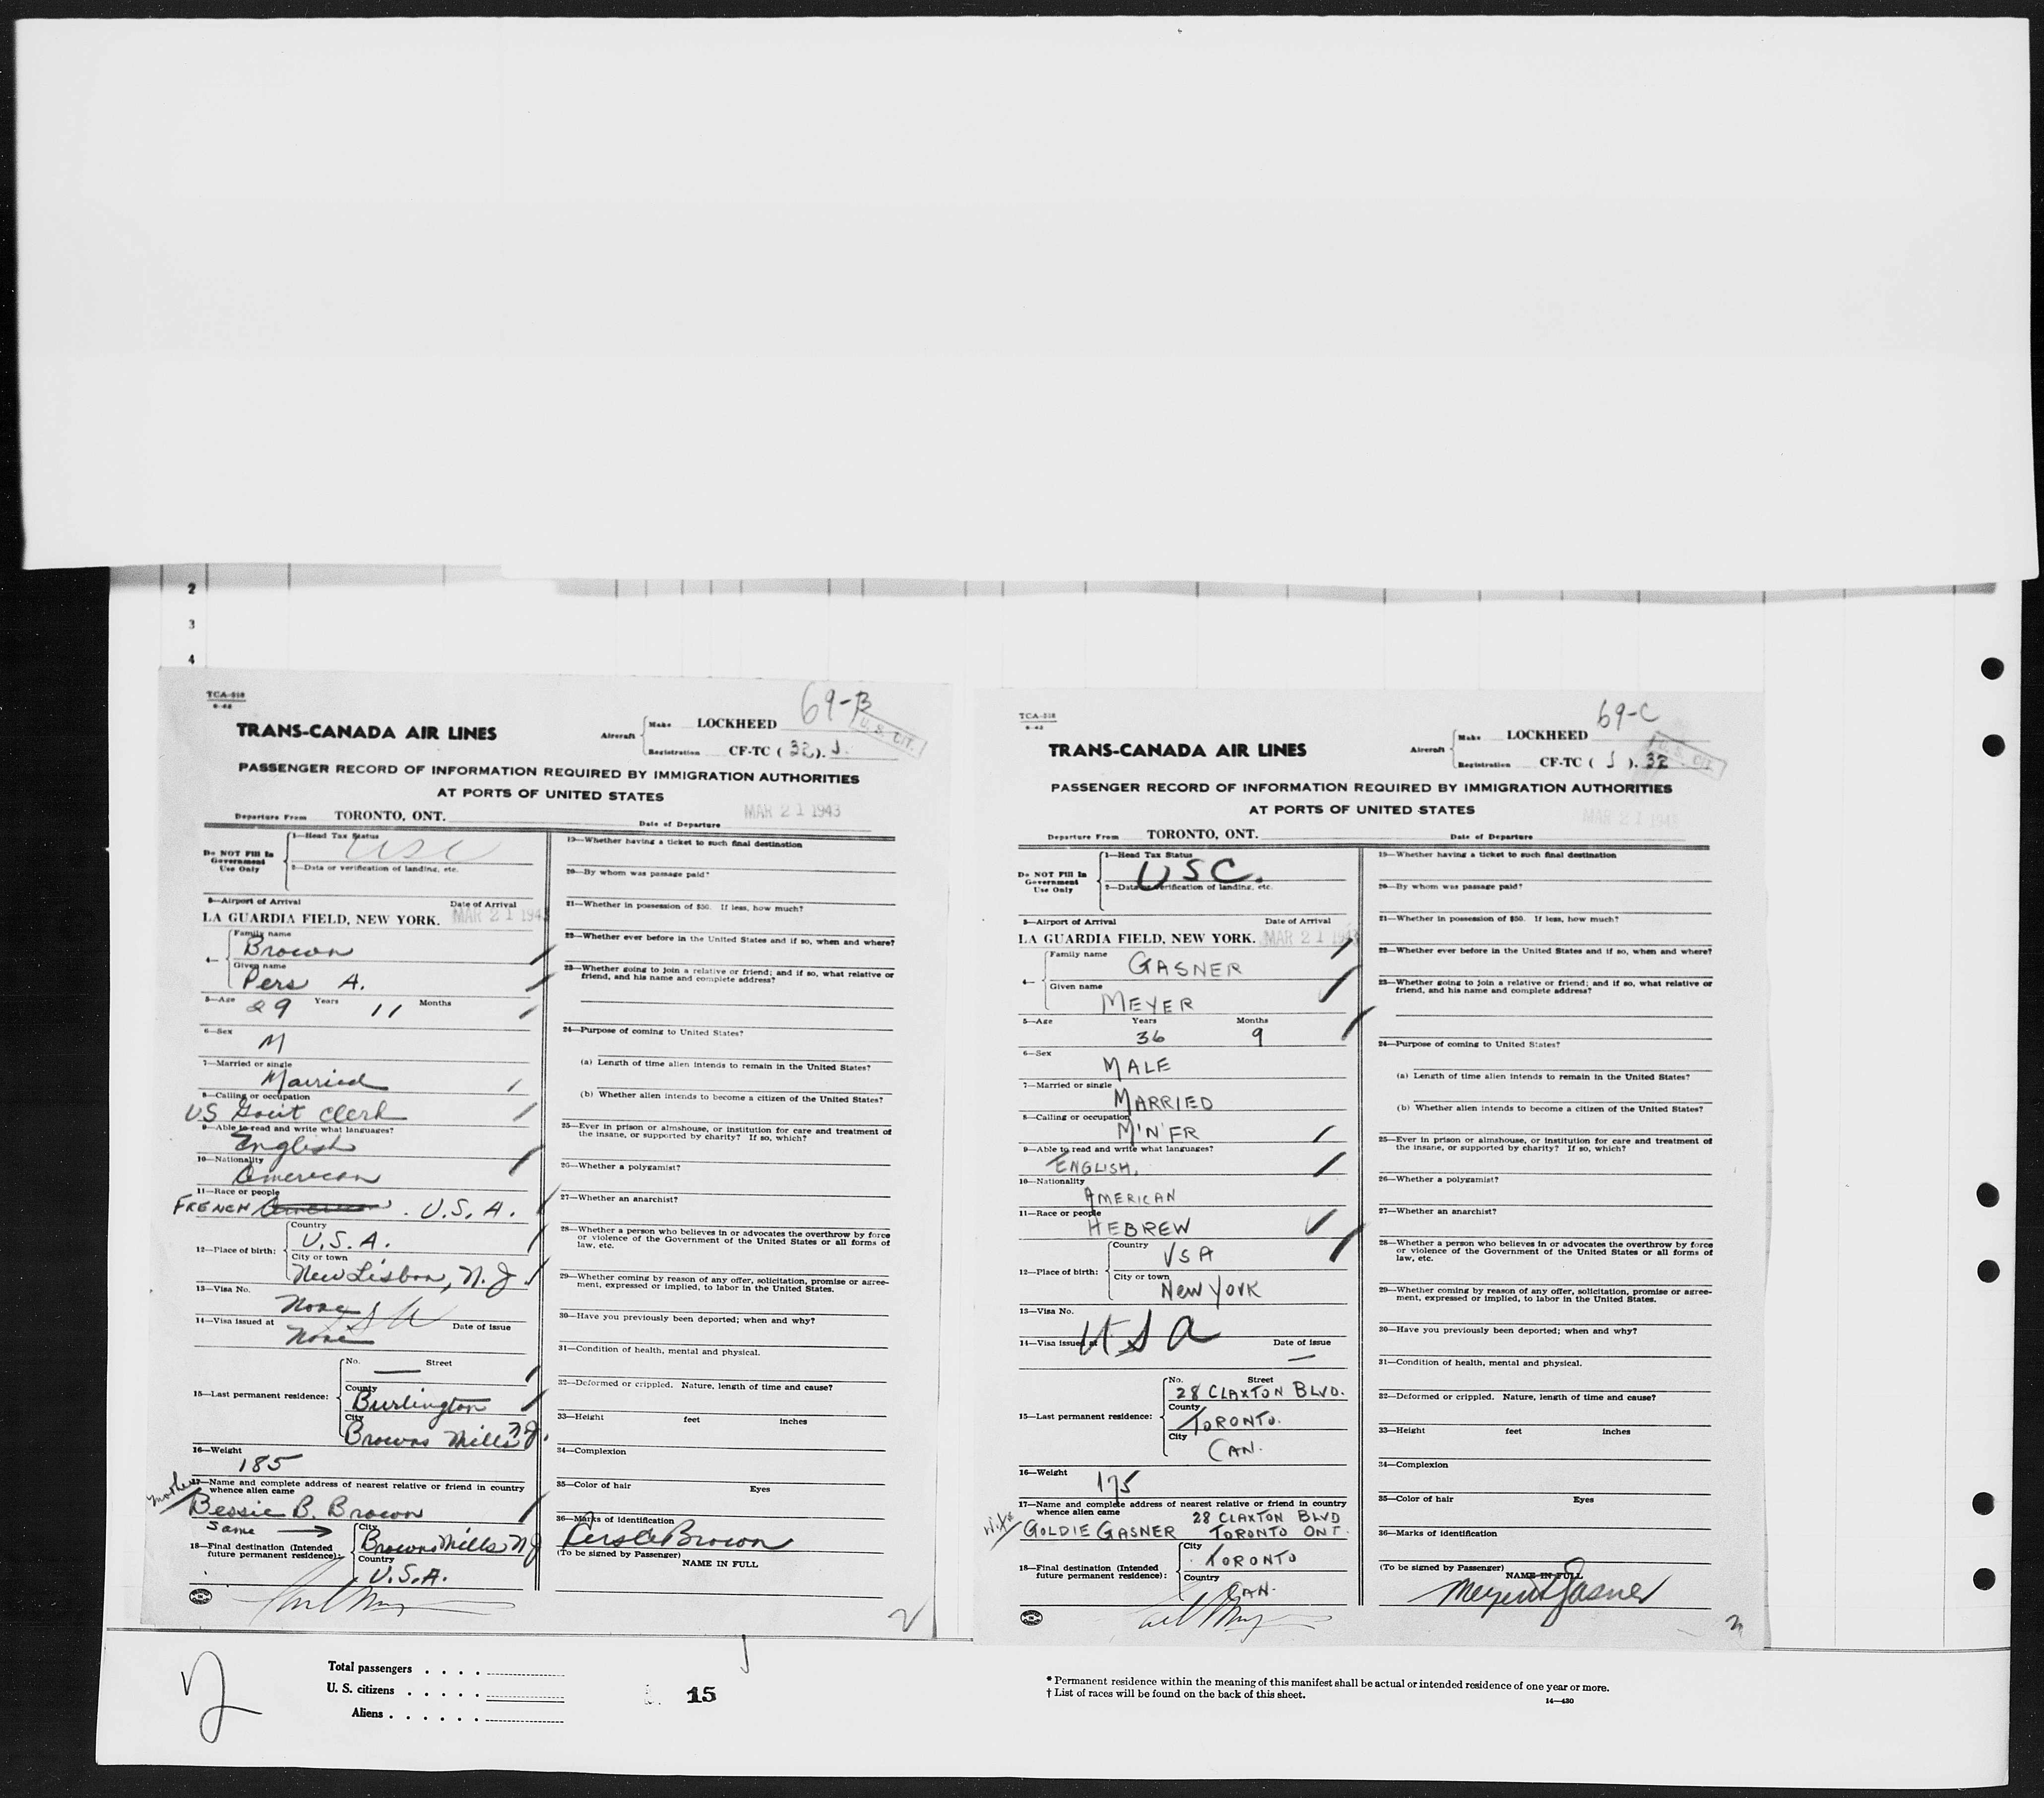 2
3
4
TCA-318
6-42
69-B
U. S. CIT.
TRANS-CANADA AIR LINES
Aircraft
Make LOCKHEED
Registration CF-TC ( 32 ). J.
PASSENGER RECORD OF INFORMATION REQUIRED BY IMMIGRATION AUTHORITIES
AT PORTS OF UNITED STATES
Departure From TORONTO, ONT. Date of Departure MAR 21 1943
Do NOT Fill In Government Use Only
1—Head Tax Status
USC
2—Data or verification of landing, etc.
3—Airport of Arrival Date of Arrival
LA GUARDIA FIELD, NEW YORK. MAR 21 194
4—
Family name
Brown
Given name
Pers A.
5—Age 29 Years 11 Months
6—Sex
M
7—Married or single
Married
8—Calling or occupation
US Gov't Clerk
9—Able to read and write what languages?
English
10—Nationality
American
11—Race or people
FRENCH American . U.S.A.
12—Place of birth:
Country
U.S.A.
City or town
New Lisbon, N.J.
13—Visa No.
None
14—Visa issued at Date of issue
None
15—Last permanent residence:
No. Street
—
County
Burlington
City
Browns Mills NJ.
16—Weight
185
17—Name and complete address of nearest relative or friend in country
whence alien came
mother
Bessie B. Brown
Same →
18—Final destination (Intended
future permanent residence):
City
Browns Mills NJ
Country
U.S.A.
19—Whether having a ticket to such final destination
20—By whom was passage paid?
21—Whether in possession of $50. If less, how much?
22—Whether ever before in the United States and if so, when and where?
23—Whether going to join a relative or friend; and if so, what relative or
friend, and his name and complete address?
24—Purpose of coming to United States?
(a) Length of time alien intends to remain in the United States?
(b) Whether alien intends to become a citizen of the United States?
25—Ever in prison or almshouse, or institution for care and treatment of
the insane, or supported by charity? If so, which?
26—Whether a polygamist?
27—Whether an anarchist?
28—Whether a person who believes in or advocates the overthrow by force
or violence of the Government of the United States or all forms of
law, etc.
29—Whether coming by reason of any offer, solicitation, promise or agree-
ment, expressed or implied, to labor in the United States.
30—Have you previously been deported; when and why?
31—Condition of health, mental and physical.
32—Deformed or crippled. Nature, length of time and cause?
33—Height feet inches
34—Complexion
35—Color of hair Eyes
36—Marks of identification
Brown
(To be signed by Passenger)
NAME IN FULL
2
TCA-318
6-42
69-C
U. S. CIT.
TRANS-CANADA AIR LINES
Aircraft
Make LOCKHEED
Registration CF-TC ( J ). 32
PASSENGER RECORD OF INFORMATION REQUIRED BY IMMIGRATION AUTHORITIES
AT PORTS OF UNITED STATES
MAR 21 1943
Departure From TORONTO, ONT. Date of Departure
Do NOT Fill In Government Use Only
1—Head Tax Status
USC.
2—Data or verification of landing, etc.
3—Airport of Arrival Date of Arrival
LA GUARDIA FIELD, NEW YORK. MAR 21 1943
4—
Family name
GASNER
Given name
MEYER
5—Age Years Months
36 9
6—Sex
MALE
7—Married or single
MARRIED
8—Calling or occupation
M'N'FR
9—Able to read and write what languages?
ENGLISH.
10—Nationality
AMERICAN
11—Race or people
HEBREW
12—Place of birth:
Country
USA
City or town
New York
13—Visa No.
USA
14—Visa issued at Date of issue
—
15—Last permanent residence:
No. Street
28 CLAXTON BLVD.
County
TORONTO.
City
CAN.
16—Weight
175
17—Name and complete address of nearest relative or friend in country
whence alien came
28 CLAXTON BLVD
wife
GOLDIE GASNER TORONTO ONT.
18—Final destination (Intended
future permanent residence):
City
TORONTO
Country
CAN.
19—Whether having a ticket to such final destination
20—By whom was passage paid?
21—Whether in possession of $50. If less, how much?
22—Whether ever before in the United States and if so, when and where?
23—Whether going to join a relative or friend; and if so, what relative or
friend, and his name and complete address?
24—Purpose of coming to United States?
(a) Length of time alien intends to remain in the United States?
(b) Whether alien intends to become a citizen of the United States?
25—Ever in prison or almshouse, or institution for care and treatment of
the insane, or supported by charity? If so, which?
26—Whether a polygamist?
27—Whether an anarchist?
28—Whether a person who believes in or advocates the overthrow by force
or violence of the Government of the United States or all forms of
law, etc.
29—Whether coming by reason of any offer, solicitation, promise or agree-
ment, expressed or implied, to labor in the United States.
30—Have you previously been deported; when and why?
31—Condition of health, mental and physical.
32—Deformed or crippled. Nature, length of time and cause?
33—Height feet inches
34—Complexion
35—Color of hair Eyes
36—Marks of identification
(To be signed by Passenger)
NAME IN FULL
Meyer Gasner
2
2
Total passengers . . . .
U. S. citizens . . . . .
Aliens . . . . . .
15
* Permanent residence within the meaning of this manifest shall be actual or intended residence of one year or more.
† List of races will be found on the back of this sheet.
14—430